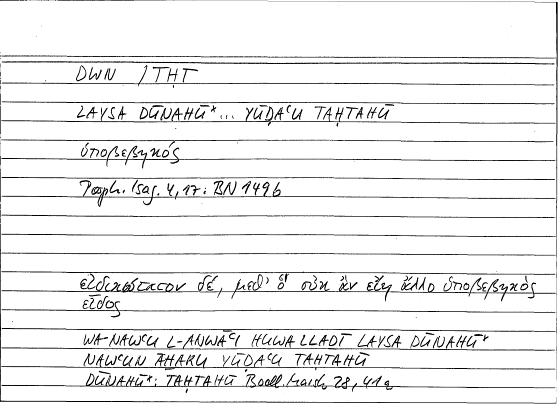 DWN / TḤT
LAYSA DŪNAHŪ* ... YŪḌAʿU TAḤTAHŪ
ὑποβεβηκός
Porph. Isag. 4,17: BN 149b
εἰδικώτατον δέ, μεθ' ὃ οὐκ ἂν εἴη ἄλλο ὑποβεβηκὸς
εἶδος
WA-NAWʿU L-ANWĀʿI HUWA LLAḎĪ LAYSA DŪNAHŪ*
NAWʿUN ĀḪARU YŪḌAʿU TAḤTAHŪ
DŪNAHŪ*: TAḤTAHŪ Bodl. Marsh 28, 41a